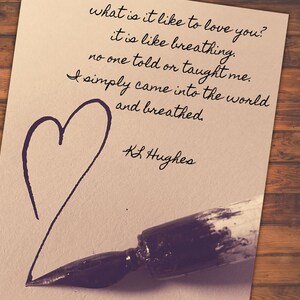 what is it like to love you?
it is like breathing.
no one told or taught me.
I simply came into the world
and breathed.
KL Hughes